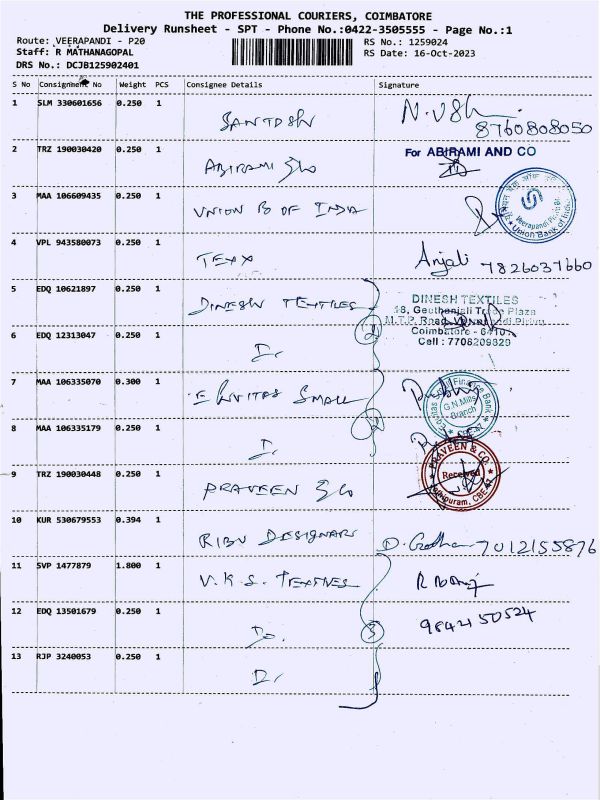 THE PROFESSIONAL COURIERS, COIMBATORE
Delivery Runsheet - SPT - Phone No.:0422-3505555 - Page No.:1
Route: VEERAPANDI - P20 RS No.: 1259024
Staff: R MATHANAGOPAL RS Date: 16-Oct-2023
DRS No.: DCJB125902401
S No Consignment No Weight PCS Consignee Details Signature
1 SLM 330601656 0.250 1
SANTOSH N. USh
8760808050
2 TRZ 190030420 0.250 1 For ABIRAMI AND CO
ABIRAMI & Co
3 MAA 106609435 0.250 1
UNION B OF INDIA Veerapandi Union Bank of India
4 VPL 943580073 0.250 1
TEXX Anjali 7826037660
5 EDQ 10621897 0.250 1 DINESH TEXTILES
DINESH TEXTILES 18, Geethanjali Trade Plaza
M.T.P. Road,
6 EDQ 12313047 0.250 1 Coimbatore
2 Cell : 7708209829
D.
7 MAA 106335070 0.300 1
EQUITAS SMALL Equitas Small Finance Bank G.N.Mills Branch
8 MAA 106335179 0.250 1 2
D.
9 TRZ 190030448 0.250 1 PRAVEEN & CO. Received CBE-47
PRAVEEN & Co
10 KUR 530679553 0.394 1
RIBU DESIGNARS 7012155876
11 SVP 1477879 1.800 1
V.K.S. TEXTILES
12 EDQ 13501679 0.250 1 9842150524
Do. 3
13 RJP 3240053 0.250 1
D.